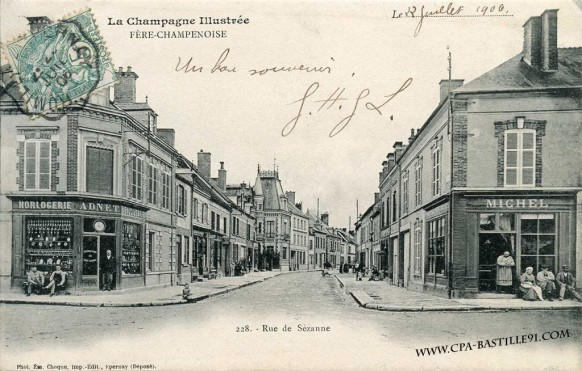 La Champagne Illustrée
FÈRE-CHAMPENOISE
Le 22 Juillet 1906
Un bon souvenir
HORLOGERIE ADNET
MICHEL
228. - Rue de Sézanne
WWW.CPA-BASTILLE91.COM
Phot. Ém. Choque, Imp.-Édit., Epernay (Déposé).